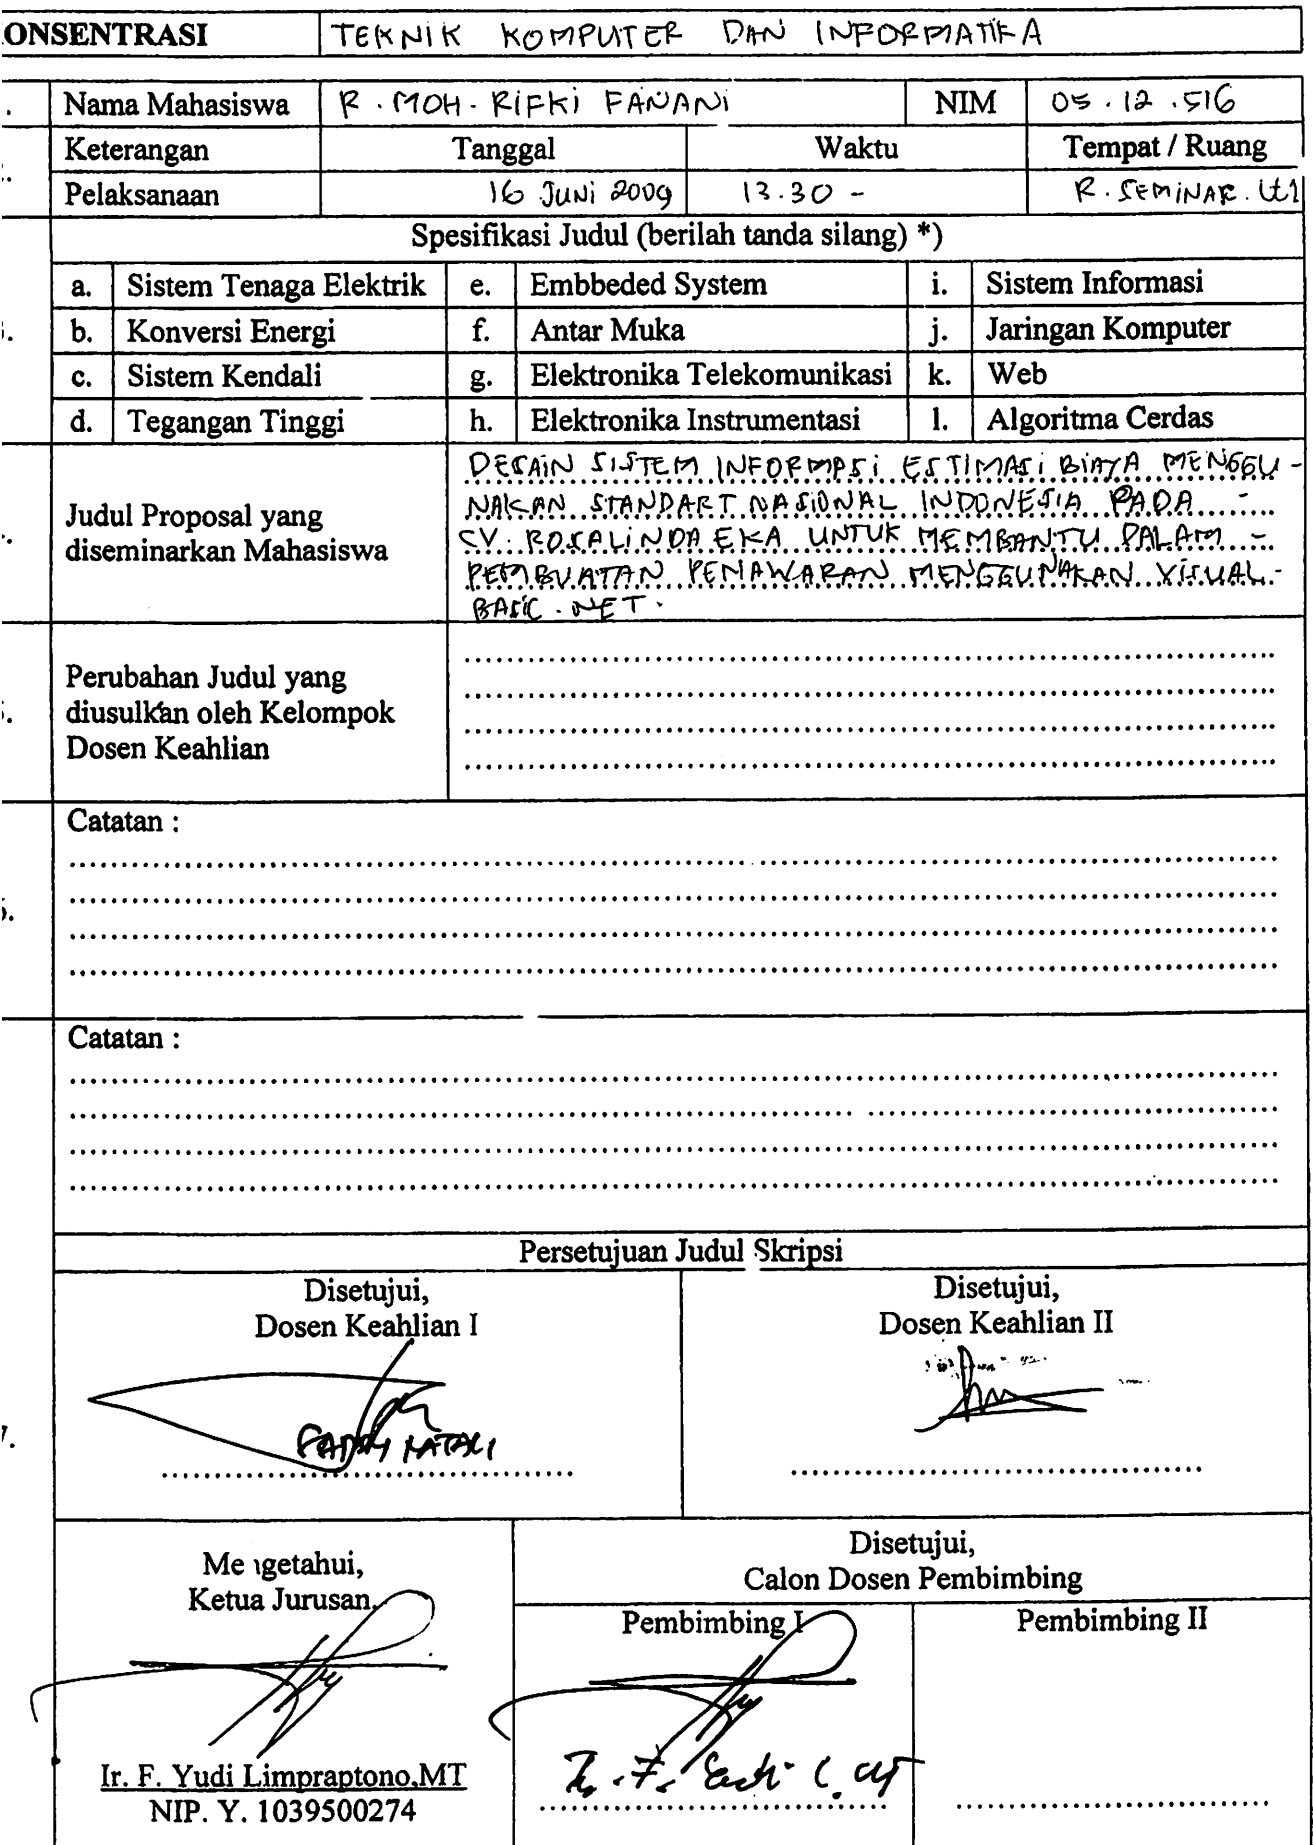 ONSENTRASI TEKNIK KOMPUTER DAN INFORMATIKA
Nama Mahasiswa R. MOH. RIFKI FANANI NIM 05.12.516
Keterangan Tanggal Waktu Tempat / Ruang
Pelaksanaan 16 JUNI 2009 13.30 - R. SEMINAR. Lt1
Spesifikasi Judul (berilah tanda silang) *)
a. Sistem Tenaga Elektrik e. Embbeded System i. Sistem Informasi
b. Konversi Energi f. Antar Muka j. Jaringan Komputer
c. Sistem Kendali g. Elektronika Telekomunikasi k. Web
d. Tegangan Tinggi h. Elektronika Instrumentasi l. Algoritma Cerdas
Judul Proposal yang
diseminarkan Mahasiswa
DESAIN SISTEM INFORMASI ESTIMASI BIAYA MENGGU-
NAKAN STANDART NASIONAL INDONESIA PADA -
CV. ROSALINDA EKA UNTUK MEMBANTU DALAM -
PEMBUATAN PENAWARAN MENGGUNAKAN VISUAL-
BASIC. NET.
Perubahan Judul yang
diusulkan oleh Kelompok
Dosen Keahlian
Catatan :
Catatan :
7.
Persetujuan Judul Skripsi
Disetujui,
Dosen Keahlian I
Disetujui,
Dosen Keahlian II
Me getahui,
Ketua Jurusan,
Ir. F. Yudi Limpraptono,MT
NIP. Y. 1039500274
Disetujui,
Calon Dosen Pembimbing
Pembimbing I Pembimbing II